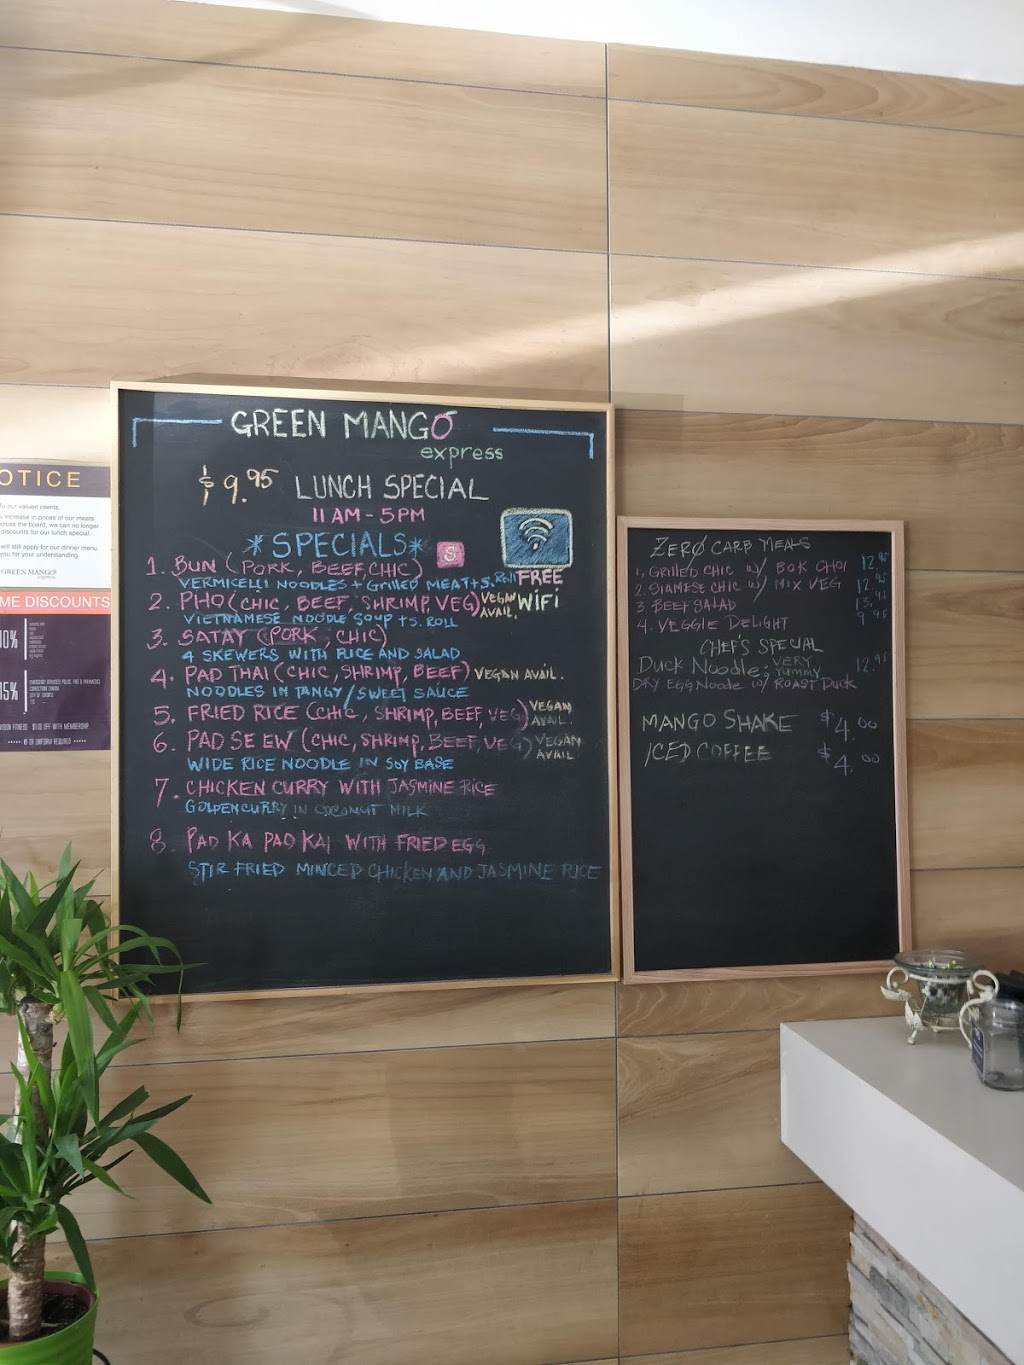 OTICE
To our valued clients,
increase in prices of our meats
cross the board, we can no longer
discounts for our lunch special.
will still apply for our dinner menu.
you for your understanding.
GREEN MANGO
express
ME DISCOUNTS
10%
15%
GREEN MANGO
express
$9.95 LUNCH SPECIAL
11 AM - 5 PM
*SPECIALS*
FREE
WiFi
1. BUN (PORK, BEEF, CHIC)
VERMICELLI NOODLES + GRILLED MEAT + S. ROLL
2. PHO (CHIC, BEEF, SHRIMP, VEG) VEGAN AVAIL.
VIETNAMESE NOODLE SOUP + S. ROLL
3. SATAY (PORK, CHIC)
4 SKEWERS WITH RICE AND SALAD
4. PAD THAI (CHIC, SHRIMP, BEEF) VEGAN AVAIL.
NOODLES IN TANGY/SWEET SAUCE
5. FRIED RICE (CHIC, SHRIMP, BEEF, VEG) VEGAN AVAIL.
6. PAD SE EW (CHIC, SHRIMP, BEEF, VEG) VEGAN AVAIL
WIDE RICE NOODLE IN SOY BASE
7. CHICKEN CURRY WITH JASMINE RICE
GOLDEN CURRY IN COCONUT MILK
8. PAD KA PAO KAI WITH FRIED EGG
STIR FRIED MINCED CHICKEN AND JASMINE RICE
ZERO CARB MEALS
1. GRILLED CHIC W/ BOK CHOI 12.95
2. SIAMESE CHIC W/ MIX VEG 12.95
3. BEEF SALAD 13.95
4. VEGGIE DELIGHT 9.95
CHEF'S SPECIAL
DUCK NOODLE; VERY YUMMY 12.95
DRY EGG NOODLE W/ ROAST DUCK
MANGO SHAKE $4.00
ICED COFFEE $4.00